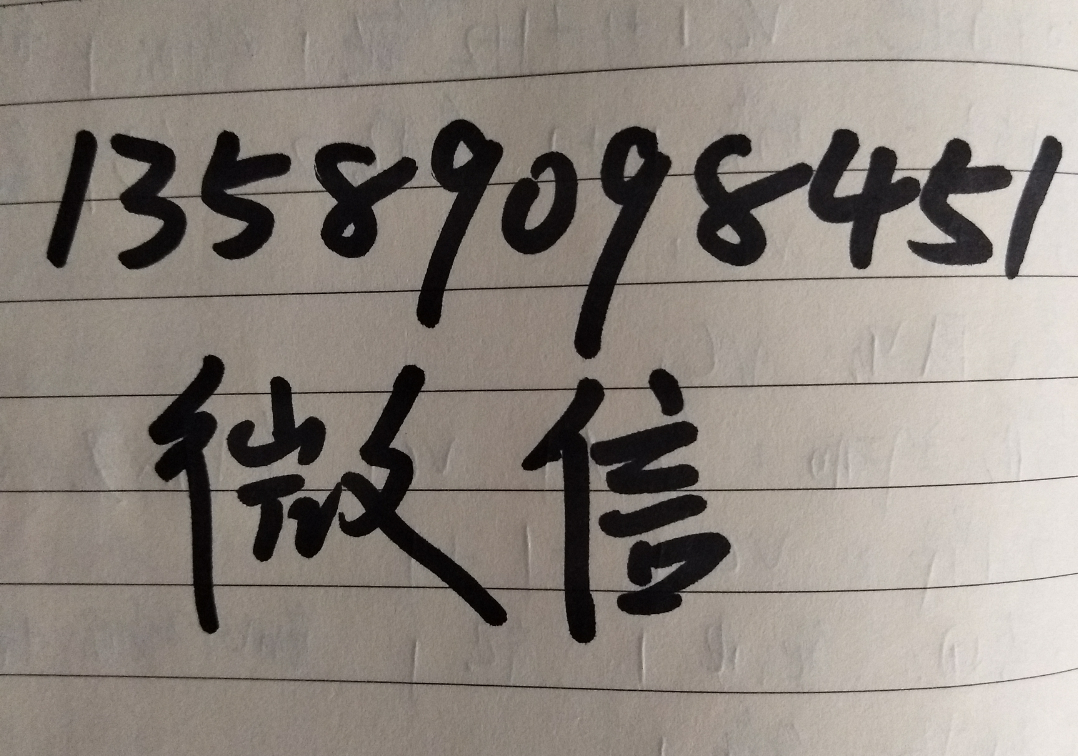 13589098451
微信